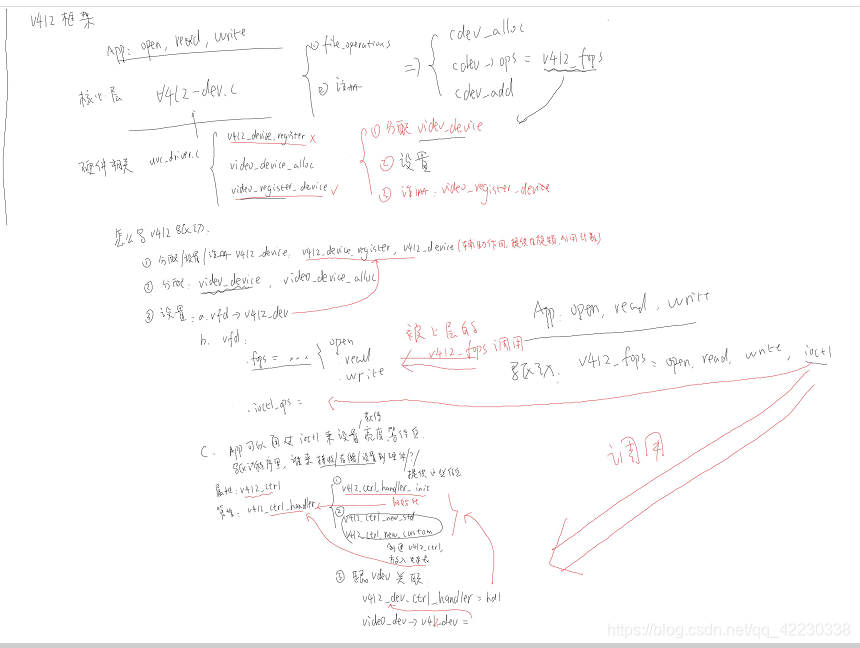 v4l2 框架
App: open, read, write
核心层 v4l2-dev.c
① file_operations
② 注册
=>
cdev_alloc
cdev->ops = v4l2_fops
cdev_add
硬件相关 uvc_driver.c
v4l2_device_register x
video_device_alloc
video_register_device ✓
① 分配 video_device
② 设置
③ 注册: video_register_device
怎么写v4l2驱动:
① 分配/设置/注册 v4l2_device: v4l2_device_register, v4l2_device (辅助作用, 提供自旋锁, 引用计数)
② 分配: video_device, video_device_alloc
③ 设置: a. vfd->v4l2_dev
b. vfd:
.fops = ...
open
read
write
被上层的
v4l2_fops调用
.ioctl_ops =
App: open, read, write
驱动: v4l2_fops = open, read, write, ioctl
调用
C. App可以通过 ioctl 来设置/获得 亮度等信息
驱动程序里, 谁来接收/存储/设置到硬件/?/
提供这些信息
属性: v4l2_ctrl
管理: v4l2_ctrl_handler
① v4l2_ctrl_handler_init
初始化
② v4l2_ctrl_new_std
v4l2_ctrl_new_custom
创建 v4l2_ctrl,
并放入链表
③ 跟vdev关联
v4l2_dev.ctrl_handler = hdl
video_dev->v4l2_dev =
https://blog.csdn.net/qq_42230338